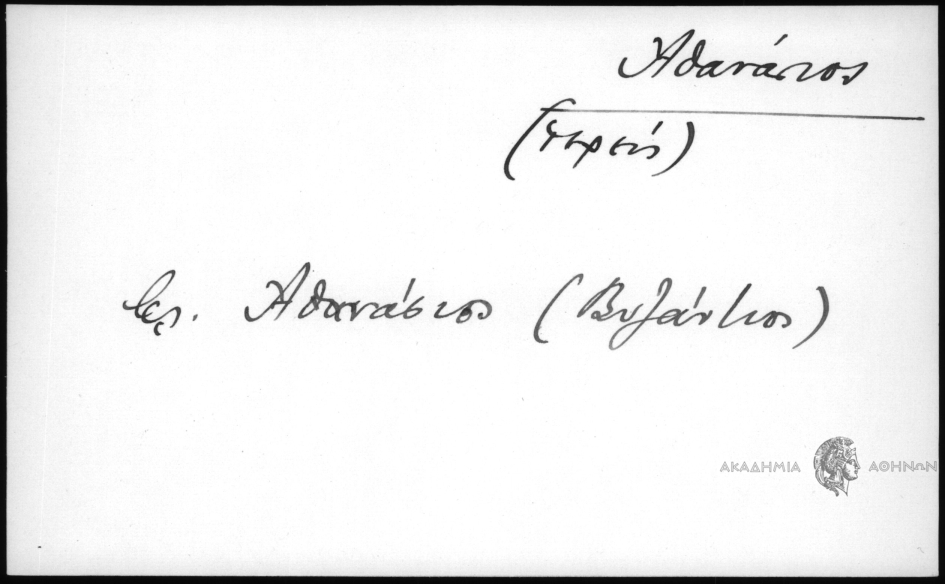 Ἀθανάσιος
(ἱερεύς)
Βλ. Ἀθανάσιος (Βυζάντιος)
ΑΚΑΔΗΜΙΑ ΑΘΗΝΩΝ